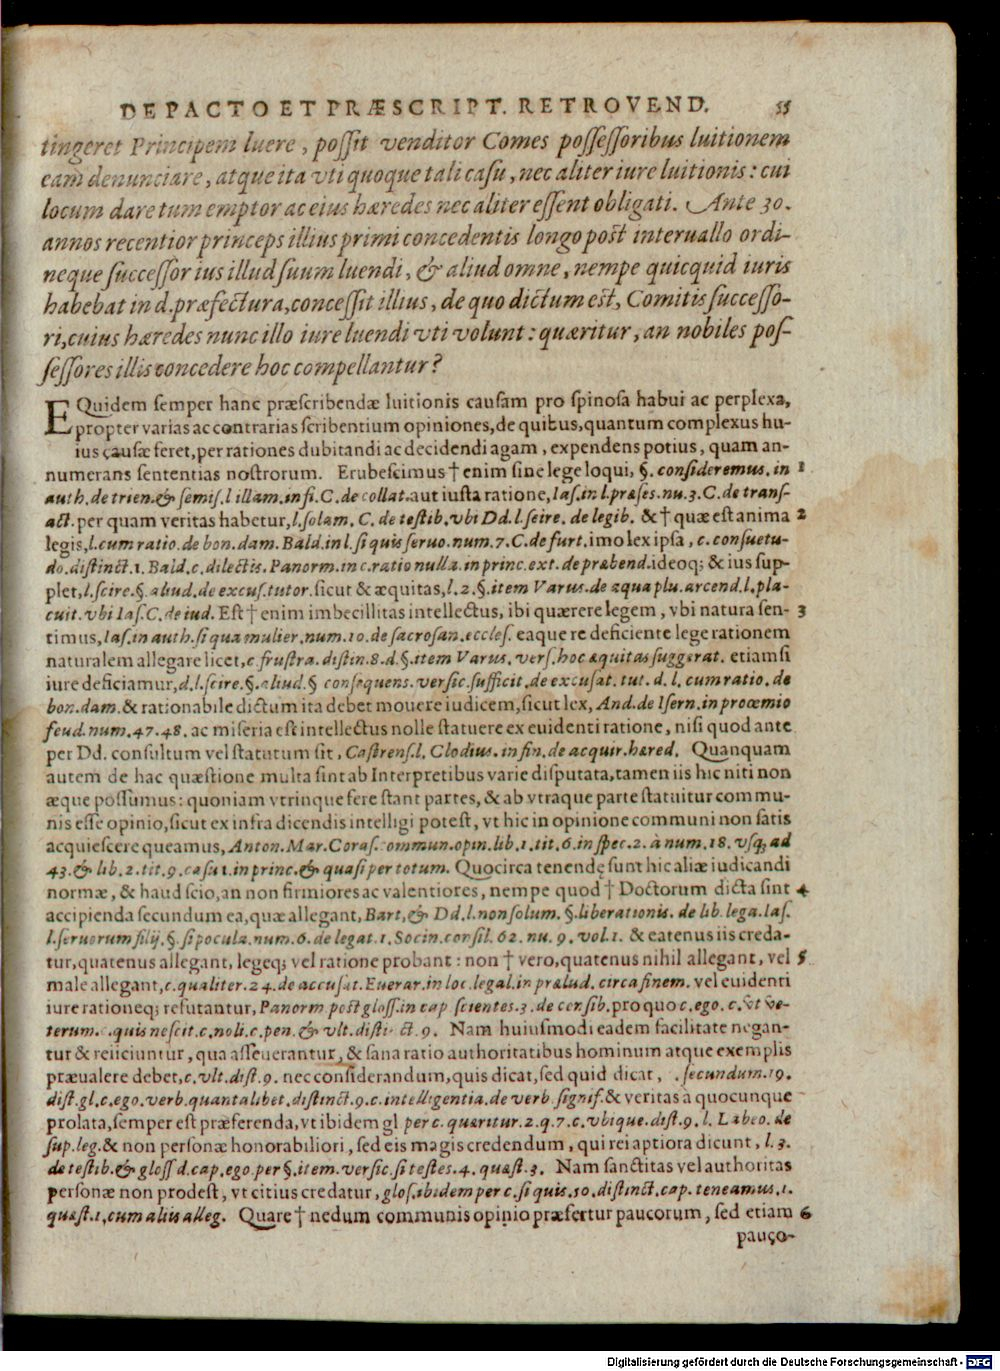 DE PACTO ET PRÆSCRIPT. RETROVEND. 55
tingeret Principem luere, possit venditor Comes possessoribus luitionem
eam denunciare, atque ita vti quoque tali casu, nec aliter iure luitionis: cui
locum dare tum emptor ac eius hæredes nec aliter essent obligati. Ante 30.
annos recentior princeps illius primi concedentis longo post interuallo ordi-
neque successor ius illud suum luendi, & aliud omne, nempe quicquid iuris
habebat in d. præfectura, concessit illius, de quo dictum est, Comitis successo-
ri, cuius hæredes nunc illo iure luendi vti volunt: quæritur, an nobiles pos-
sessores illis concedere hoc compellantur?
EQuidem semper hanc præscribendæ luitionis causam pro spinosa habui ac perplexa,
propter varias ac contrarias scribentium opiniones, de quibus, quantum complexus hu-
ius causæ feret, per rationes dubitandi ac decidendi agam, expendens potius, quam an-
numerans sententias nostrorum. Erubescimus † enim sine lege loqui, §. consideremus. in 1
auth. de trien. & semis. l illam. in fi. C. de collat. aut iusta ratione, Ias. in l. præses. nu. 3. C. de trans-
act. per quam veritas habetur, l. solam. C. de testib. vbi Dd. l. scire. de legib. & † quæ est anima 2
legis, l. cum ratio. de bon. dam. Bald. in l. si quis seruo. num. 7. C. de furt. imo lex ipsa, c. consuetu-
do. distinct. 1. Bald. c. dilectis. Panorm. in c. ratio nulla. in princ. ext. de præbend. ideoq; & ius sup-
plet, l. scire. §. aliud. de excus. tutor. sicut & æquitas, l. 2. §. item Varus. de aqua plu. arcend. l. pla-
cuit. vbi Ias. C. de iud. Est † enim imbecillitas intellectus, ibi quærere legem, vbi natura sen- 3
timus, Ias. in auth. si qua mulier. num. 10. de sacrosan. eccles. eaque re deficiente lege rationem
naturalem allegare licet, c frustra. distin. 8. d. §. item Varus. vers. hoc æquitas suggerat. etiamsi
iure deficiamur, d. l. scire. §. aliud. § consequens. versic. sufficit. de excusat. tut. d. l. cum ratio. de
bon. dam. & rationabile dictum ita debet mouere iudicem, sicut lex, And. de Isern. in proœmio
feud. num. 47. 48. ac miseria est intellectus nolle statuere ex euidenti ratione, nisi quod ante
per Dd. consultum vel statutum sit, Castrens. l. Clodius. in fin. de acquir. hæred. Quanquam
autem de hac quæstione multa sint ab Interpretibus varie disputata, tamen iis hic niti non
æque possumus: quoniam vtrinque fere stant partes, & ab vtraque parte statuitur commu-
nis esse opinio, sicut ex infra dicendis intelligi potest, vt hic in opinione communi non satis
acquiescere queamus, Anton. Mar. Coras. commun. opin. lib. 1. tit. 6. in spec. 2. à num. 18. vsq; ad
43. & lib. 2. tit. 9. casu 1. in princ. & quasi per totum. Quocirca tenendę sunt hic aliæ iudicandi
normæ, & haud scio, an non firmiores ac valentiores, nempe quod † Doctorum dicta sint 4
accipienda secundum ea, quæ allegant, Bart, & Dd. l. non solum. §. liberationis. de lib. lega. Ias.
l. seruorum filij. §. si pocula. num. 6. de legat. 1. Socin. consil. 62. nu. 9. vol. 1. & eatenus iis creda-
tur, quatenus allegant, legeq; vel ratione probant: non † vero, quatenus nihil allegant, vel 5
male allegant, c. qualiter. 24. de accusat. Euerar. in loc. legal. in prælud. circa finem. vel euidenti
iure rationeq; refutantur, Panorm post gloss. in cap scientes. 3. de censib. pro quo c. ego. c. vt ve-
terum. c. quis nescit. c. noli. c. pen. & vlt. distinct. 9. Nam huiusmodi eadem facilitate negan-
tur & reiiciuntur, qua asseuerantur, & sana ratio authoritatibus hominum atque exemplis
præualere debet, c. vlt. dist. 9. nec considerandum, quis dicat, sed quid dicat, secundum. 19.
dist. gl. c. ego. verb. quantalibet. distinct. 9. c. intelligentia. de verb. signif. & veritas à quocunque
prolata, semper est præferenda, vt ibidem gl per c. quæritur. 2. q. 7. c. vbique. dist. 9. l. Labeo. de
sup. leg. & non personæ honorabiliori, sed eis magis credendum, qui rei aptiora dicunt, l. 3.
de testib. & gloss d. cap. ego. per §. item. versic. si testes. 4. quæst. 3. Nam sanctitas vel authoritas
personæ non prodest, vt citius credatur, glos. ibidem per c. si quis. 10. distinct. cap. teneamus. 1.
quæst. 1. cum aliis alleg. Quare † nedum communis opinio præfertur paucorum, sed etiam 6
pauco-
Digitalisierung gefördert durch die Deutsche Forschungsgemeinschaft - DFG